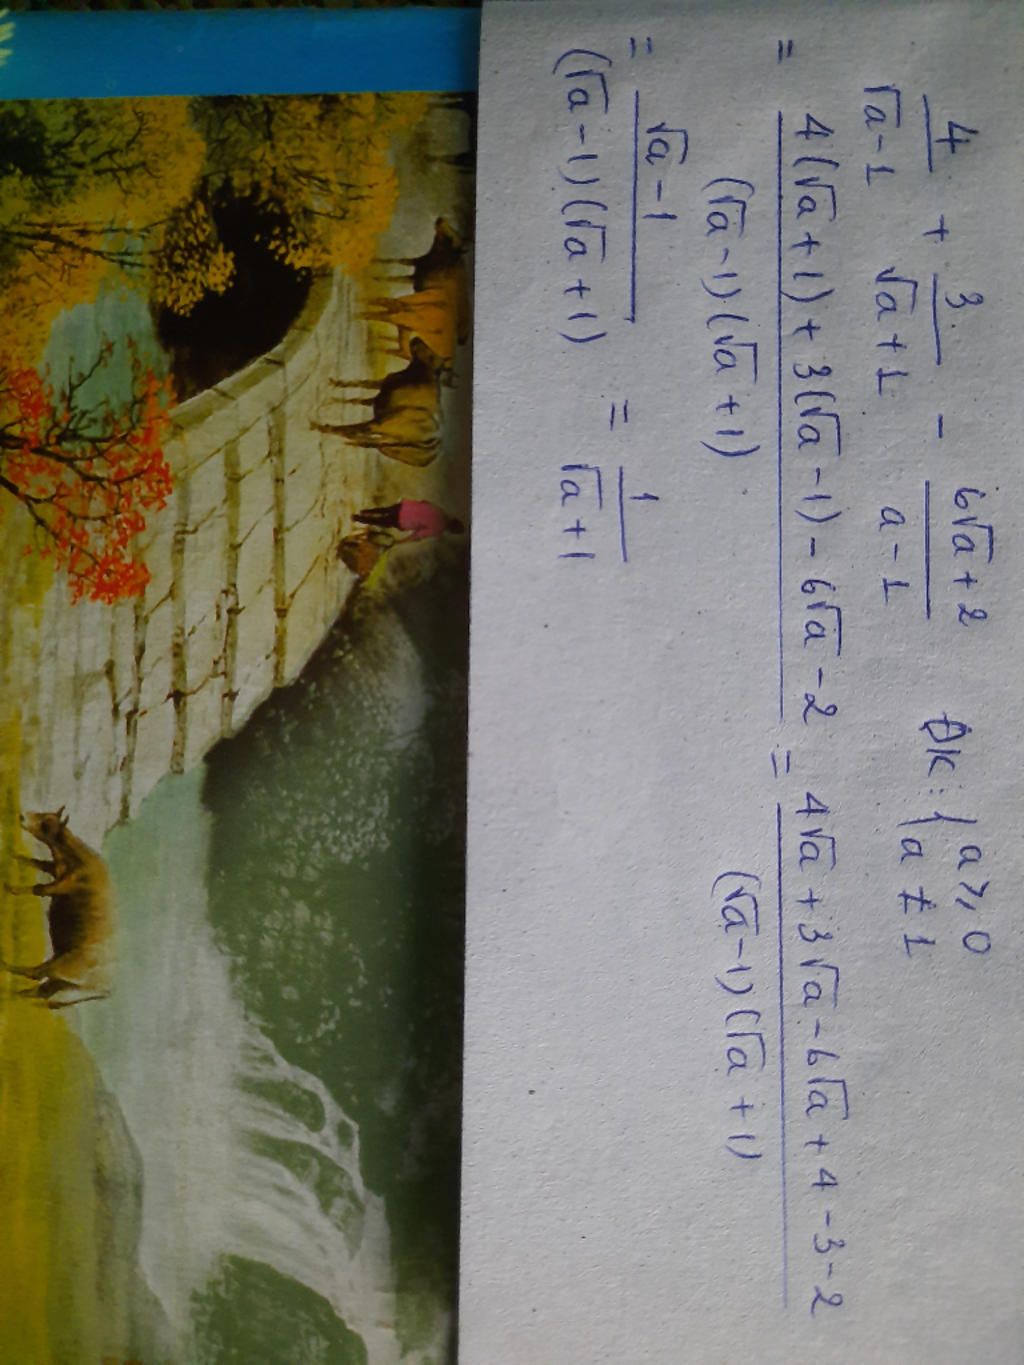 4/(√a-1) + 3/(√a+1) - (6√a+2)/(a-1) ĐK: { a ⩾ 0
a ≠ 1
= (4(√a+1)+3(√a-1)-6√a-2)/((√a-1)(√a+1)) = (4√a+3√a-6√a+4-3-2)/((√a-1)(√a+1))
= (√a-1)/((√a-1)(√a+1)) = 1/(√a+1)